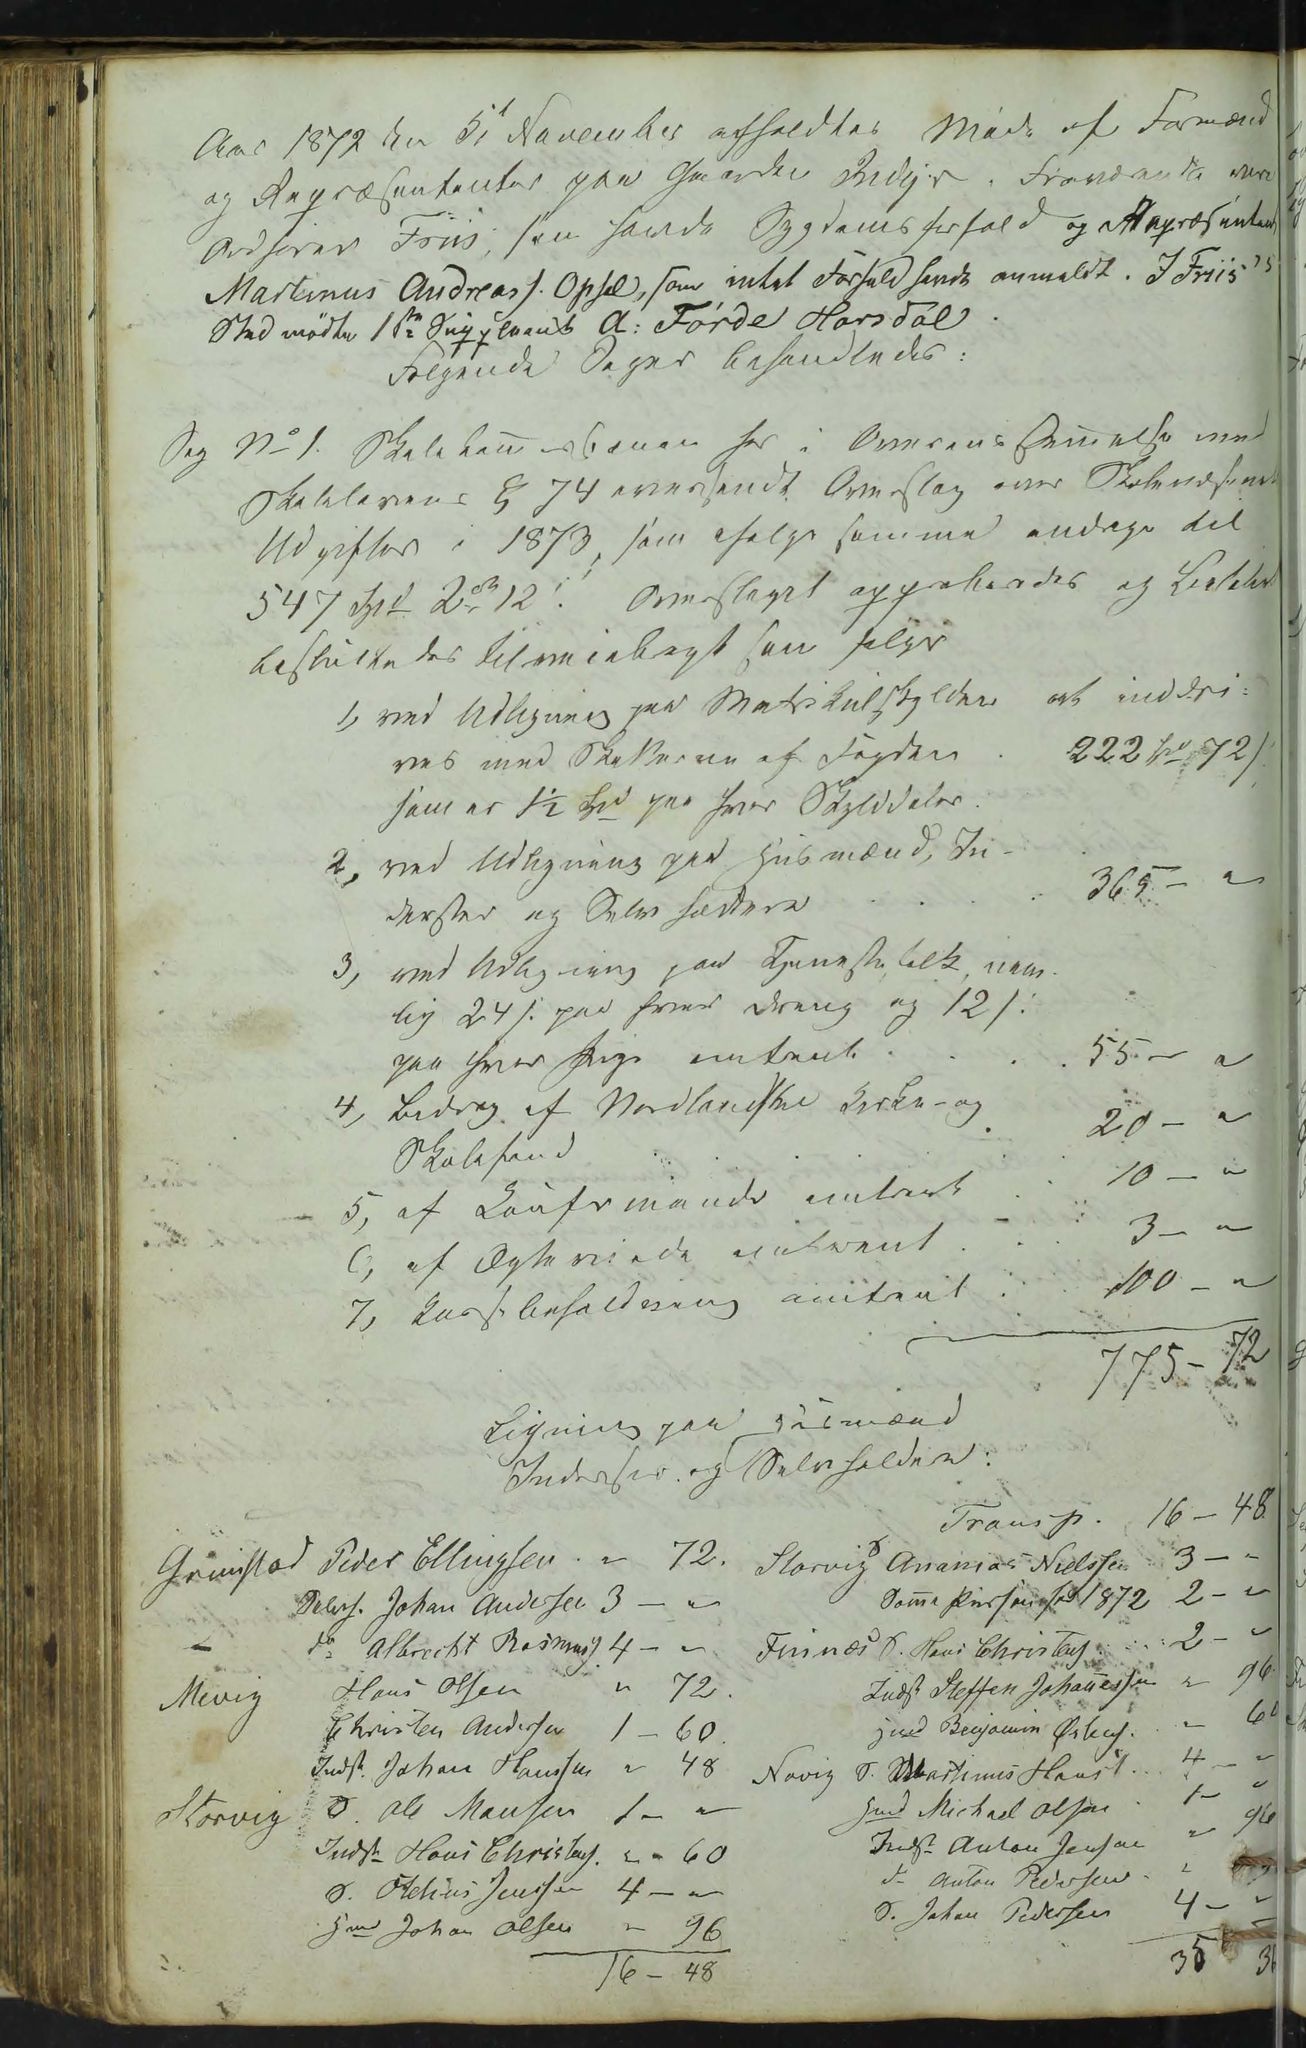 Aar 1872 den 5t November afholdtes Møde af Formænd
og Repræsentanter paa Gaarden Indyr. Fraværende vare
Ordfører Friis, som havde Sygdomsforfald og Repræsentant
Martinus Andreass. Opsal, som intet Forfald havde anmeldt. I Friis's
Sted mødte 1ste Suppleant A: Förde Horsdal.
Følgende Sager behandledes:
Sag No 1. Skolekommissionen har i Overensstemmelse med
Skolelovens § 74 oversendt Overslag over Skolevæsenets
Udgifter i 1873, som ifølge samme andrage til
547 Spd 2 ort 12 s. Overslaget approberedes og Beløbet
besluttedes tilveiebragt som følger
1, ved Udligning paa Matrikulskylden at inddri-
ves med Skatterne af Fogden . 222 Spd 72 s.
som er 1½ Spd paa hver Skylddaler.
2, ved Udligning paa Husmænd, In-
derster og Selvholdere . . . . 365 - "
3, ved Udligning paa Tjenestefolk, nem-
lig 24 s. paa hver Dreng og 12 s.
paa hver Pige omtrent . . . 55 - "
4, Bidrag af Nordlandske Kirke- og
Skolefond . . . 20 - "
5, af Laufrmænd omtrent . . 10 - "
6, af Ægteviede omtrent . . . 3 - "
7, Kassebeholdning omtrent . . 100 - "
775 - 72
Ligning paa Husmænd
Inderster og Selvholdere:
Transp. 16 - 48
Grimstad Peder Ellingsen . " 72.
Selvh. Johan Andersen 3 - "
" do Albrecht Rasmuss. 4 - "
Mevig Hans Olsen " 72.
Christen Andersen 1 - 60.
Indst. Johan Hanssen " 48
Storvig S. Ole Monsen 1 - "
Indst. Hans Christens. " - 60
S. Jenssen 4 - "
Hmd Johan Olsen " 96
16 - 48
Storvig S. Ananias Nielssen 3 - "
Samme Person for 1872 2 - "
Finnæs S. Hans Christens. . . . 2 - "
Indst. Steffen Johannessen " 96
Hmd Benjamin . " 60
Novig S. Martinus Hanss. . . 4 - "
Hmd Michael Olsen . 1 - "
Indst. Anton Jensen " 96
do Anton Pedersen . "
S. Johan Pedersen 4 - "
35 36